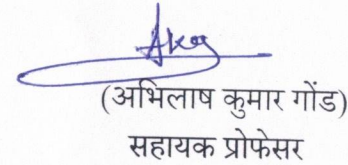 (अभिलाष कुमार गोंड)
सहायक प्रोफेसर